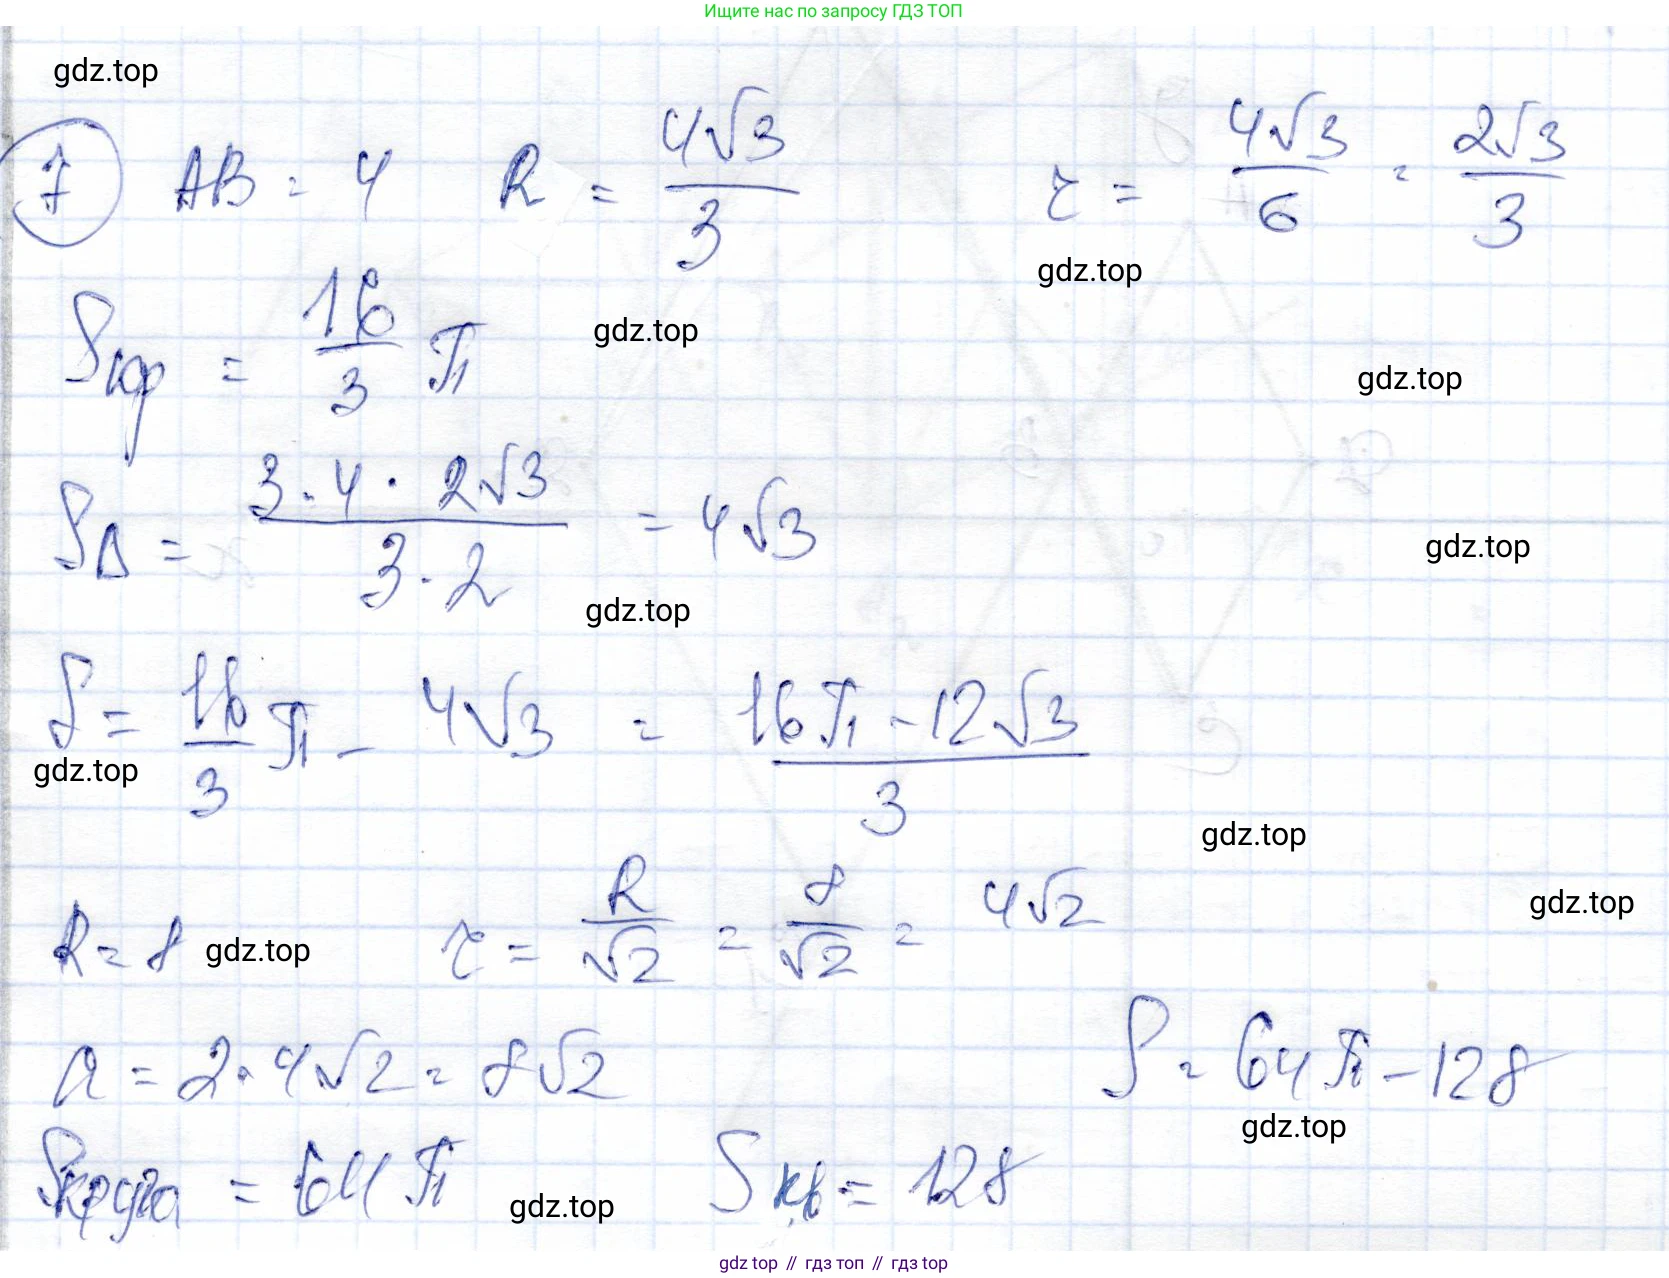 Ищите нас по запросу ГДЗ ТОП
gdz.top
7 AB = 4 R = 4√3/3 r = 4√3/6 = 2√3/3
gdz.top
Sкр = 16/3 π
gdz.top
gdz.top
S△ = 3·4·2√3/3·2 = 4√3
gdz.top
gdz.top
S = 16/3 π - 4√3 = 16π - 12√3/3
gdz.top
gdz.top
gdz.top
R = 8 r = R/√2 = 8/√2 = 4√2
gdz.top
a = 2·4√2 = 8√2 S = 64π - 128
gdz.top
Sкруга = 64π Sкв = 128
gdz.top
gdz top // гдз топ // gdz top